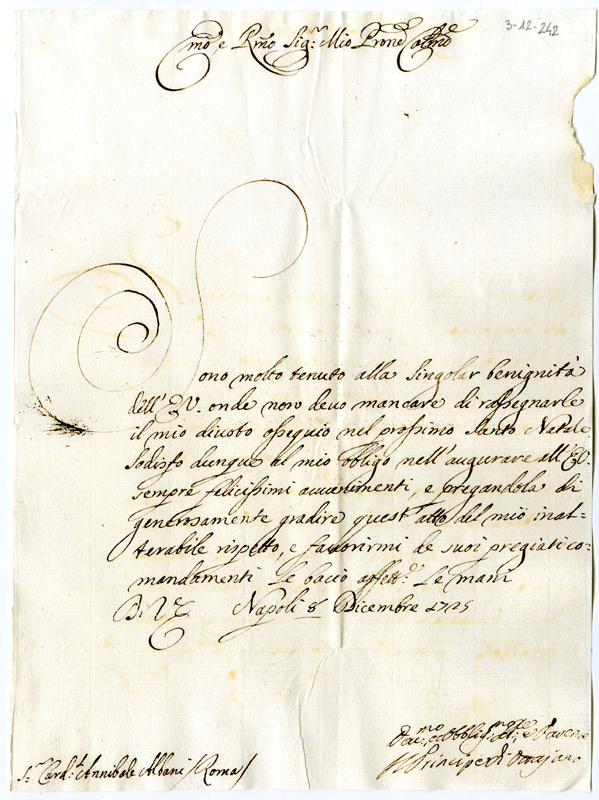 3-12-242
Emo e Rmo Sigr Mio Prone Colmo
Sono molto tenuto alla singolar benignità
dell'E.V. onde non devo mancare di rassegnarle
il mio divoto ossequio nel prossimo Santo Natale
Sodisfo dunque al mio obligo nell'augurare all'E.V.
sempre felicissimi avvenimenti, e pregandola di
generosamente gradire quest'atto del mio inal-
terabile rispetto, e favorirmi de suoi pregiati co-
mandamenti Le bacio affett.e Le mani
Di V.E. Napoli 8 Dicembre 1725
Il Principe di Ottajano
Sr Card.l Annibale Albani /Roma/